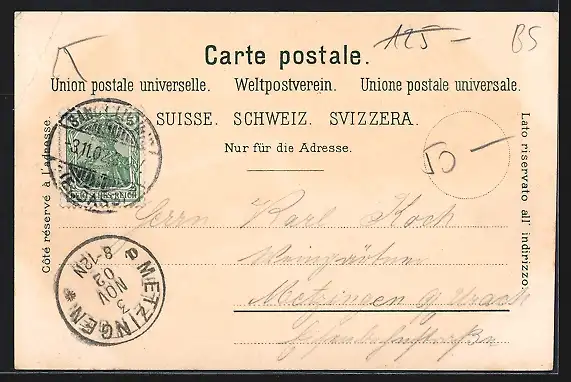 125 –
B5
Carte postale.
Union postale universelle. Weltpostverein. Unione postale universale.
SUISSE. SCHWEIZ. SVIZZERA.
Nur für die Adresse.
Côté réservé à l'adresse.
Lato riservato all' indirizzo.
3.11.02
REICH
50 –
Herrn Karl Koch
Weingärtner
Metzingen
METZINGEN
3 NOV 02
8-12N